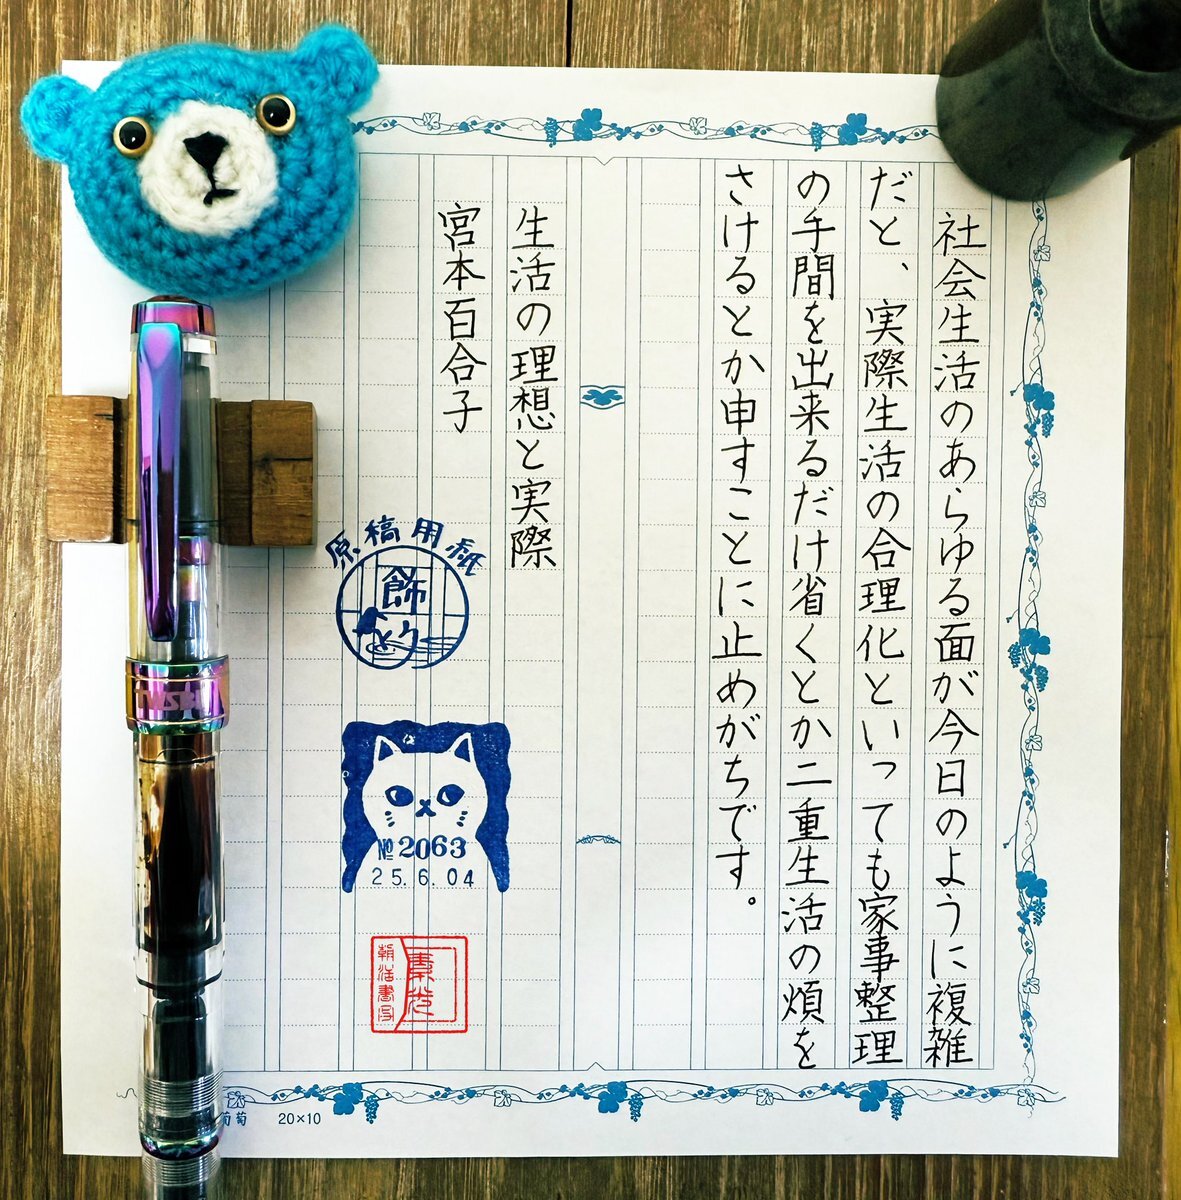 社会生活のあらゆる面が今日のように複雑
だと、実際生活の合理化といっても家事整理
の手間を出来るだけ省くとか二重生活の煩を
さけるとか申すことに止めがちです。
生活の理想と実際
宮本百合子
原稿用紙
飾
とり
№2063
25.6.04
朝活書写
TWSBI
葡萄
20×10